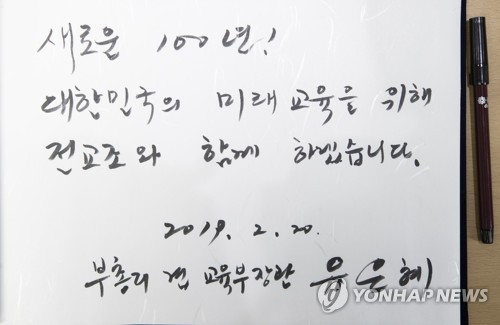 새로운 100년!
대한민국의 미래교육을 위해
전교조와 함께 하겠습니다.
2019. 2. 20.
부총리 겸 교육부장관 유은혜
YONHAP NEWS